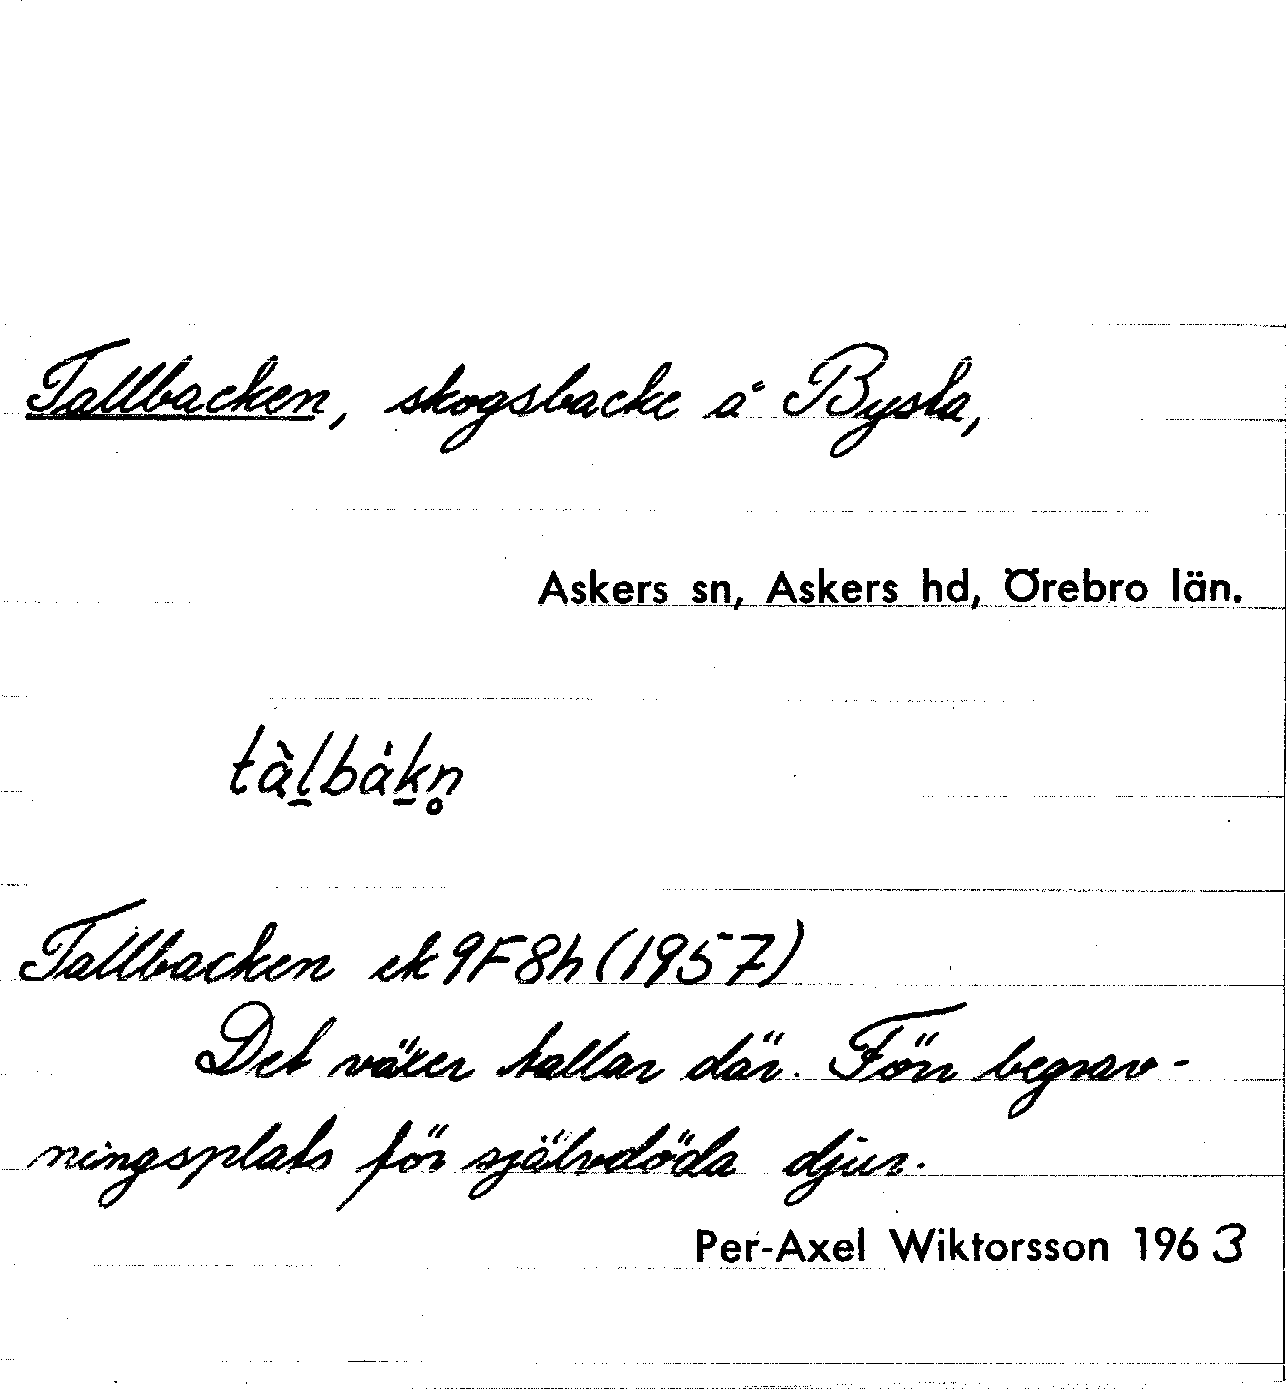 Tallbacken, skogsbacke å Bysta,
Askers sn, Askers hd, Örebro län.
tàl̠bák̠n̥
Tallbacken ek 9F8h (1957)
Det växer tallar där. Förr begrav-
ningsplats för självdöda djur.
Per-Axel Wiktorsson 1963